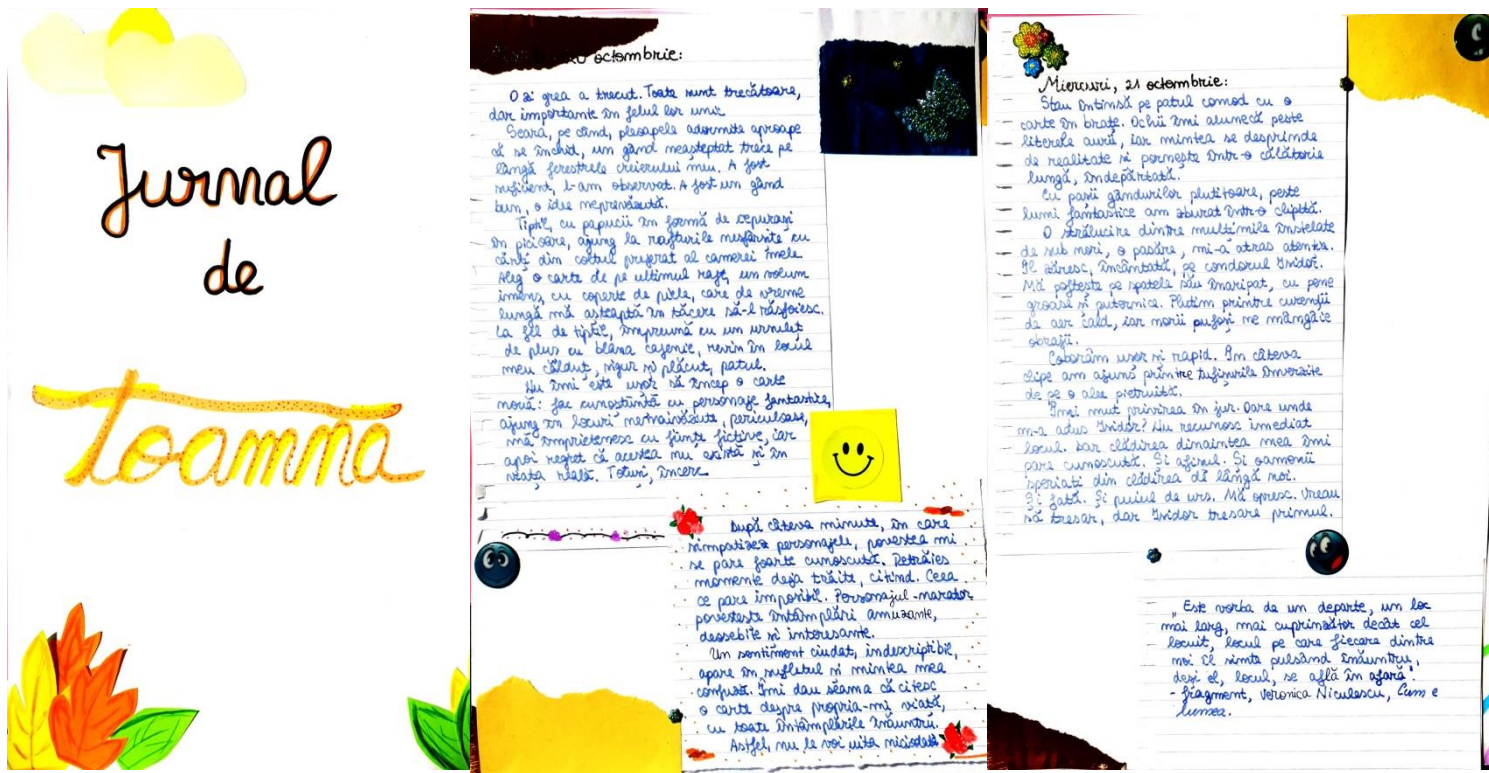 Jurnal
de
toamna
octombrie:
O zi grea a trecut. Toate sunt trecătoare,
dar importante în felul lor unic
Seara, pe când, pleoapele adormite aproape
că se închid, un gând neașteptat trece pe
lângă ferestrele creierului meu. A fost
suficient, l-am observat. A fost un gând
bun, o idee neprevăzută.
Tiptil, cu papucii în formă de iepurași
în picioare, ajung la rafturile nesfârșite cu
cărți din colțul preferat al camerei mele
Aleg o carte de pe ultimul raft, un volum
imens, cu coperte de piele, care de vreme
lungă mă așteaptă în tăcere să-l răsfoiesc.
La fel de tiptil, împreună cu un ursuleț
de pluș cu blana cafenie, revin în locul
meu călduț, sigur și plăcut, patul.
Nu îmi este ușor să încep o carte
nouă: fac cunoștință cu personaje fantastice,
ajung în locuri nemaivăzute, periculoase,
mă împrietenesc cu ființe fictive, iar
apoi regret că acestea nu există și în
viața reală. Totuși, încerc
După câteva minute, în care
simpatizez personajele, povestea mi
se pare foarte cunoscută. Retrăiesc
momente deja trăite, citind. Ceea
ce pare imposibil. Personajul-narator
povestește întâmplări amuzante,
deosebite și interesante.
Un sentiment ciudat, indescriptibil,
apare în sufletul și mintea mea
confuză. Îmi dau seama că citesc
o carte despre propria-mi viață,
cu toate întâmplările înăuntru.
Astfel, nu le voi uita niciodată
Miercuri, 21 octombrie:
Stau întinsă pe patul comod cu o
carte în brațe. Ochii îmi alunecă peste
literele aurii, iar mintea se desprinde
de realitate și pornește într-o călătorie
lungă, îndepărtată.
Cu pașii gândurilor plutitoare, peste
lumi fantastice am zburat într-o clipită.
O strălucire dintre mulțimile înstelate
de sub nori, o pasăre, mi-a atras atenția.
Îl zăresc, încântată, pe condorul Isidor.
Mă poftește pe spatele său înaripat, cu pene
groase și puternice. Plutim printre curenții
de aer cald, iar norii pufoși ne mângâie
obrajii.
Coborâm ușor și rapid. În câteva
clipe am ajuns printre tufișurile înverzite
de pe o alee pietruită.
Îmi mut privirea în jur. Oare unde
m-a adus Isidor? Nu recunosc imediat
locul. Dar clădirea dinaintea mea îmi
pare cunoscută. Și afinul. Și oamenii
speriați din clădirea de lângă noi.
Și fata. Și puiul de urs. Mă opresc. Vreau
să tresar, dar Isidor tresare primul.
„Este vorba de un departe, un loc
mai larg, mai cuprinzător decât cel
locuit, locul pe care fiecare dintre
noi îl simte pulsând înăuntru,
deși el, locul, se află în afară".
- fragment, Veronica Niculescu, Cum e
lumea.